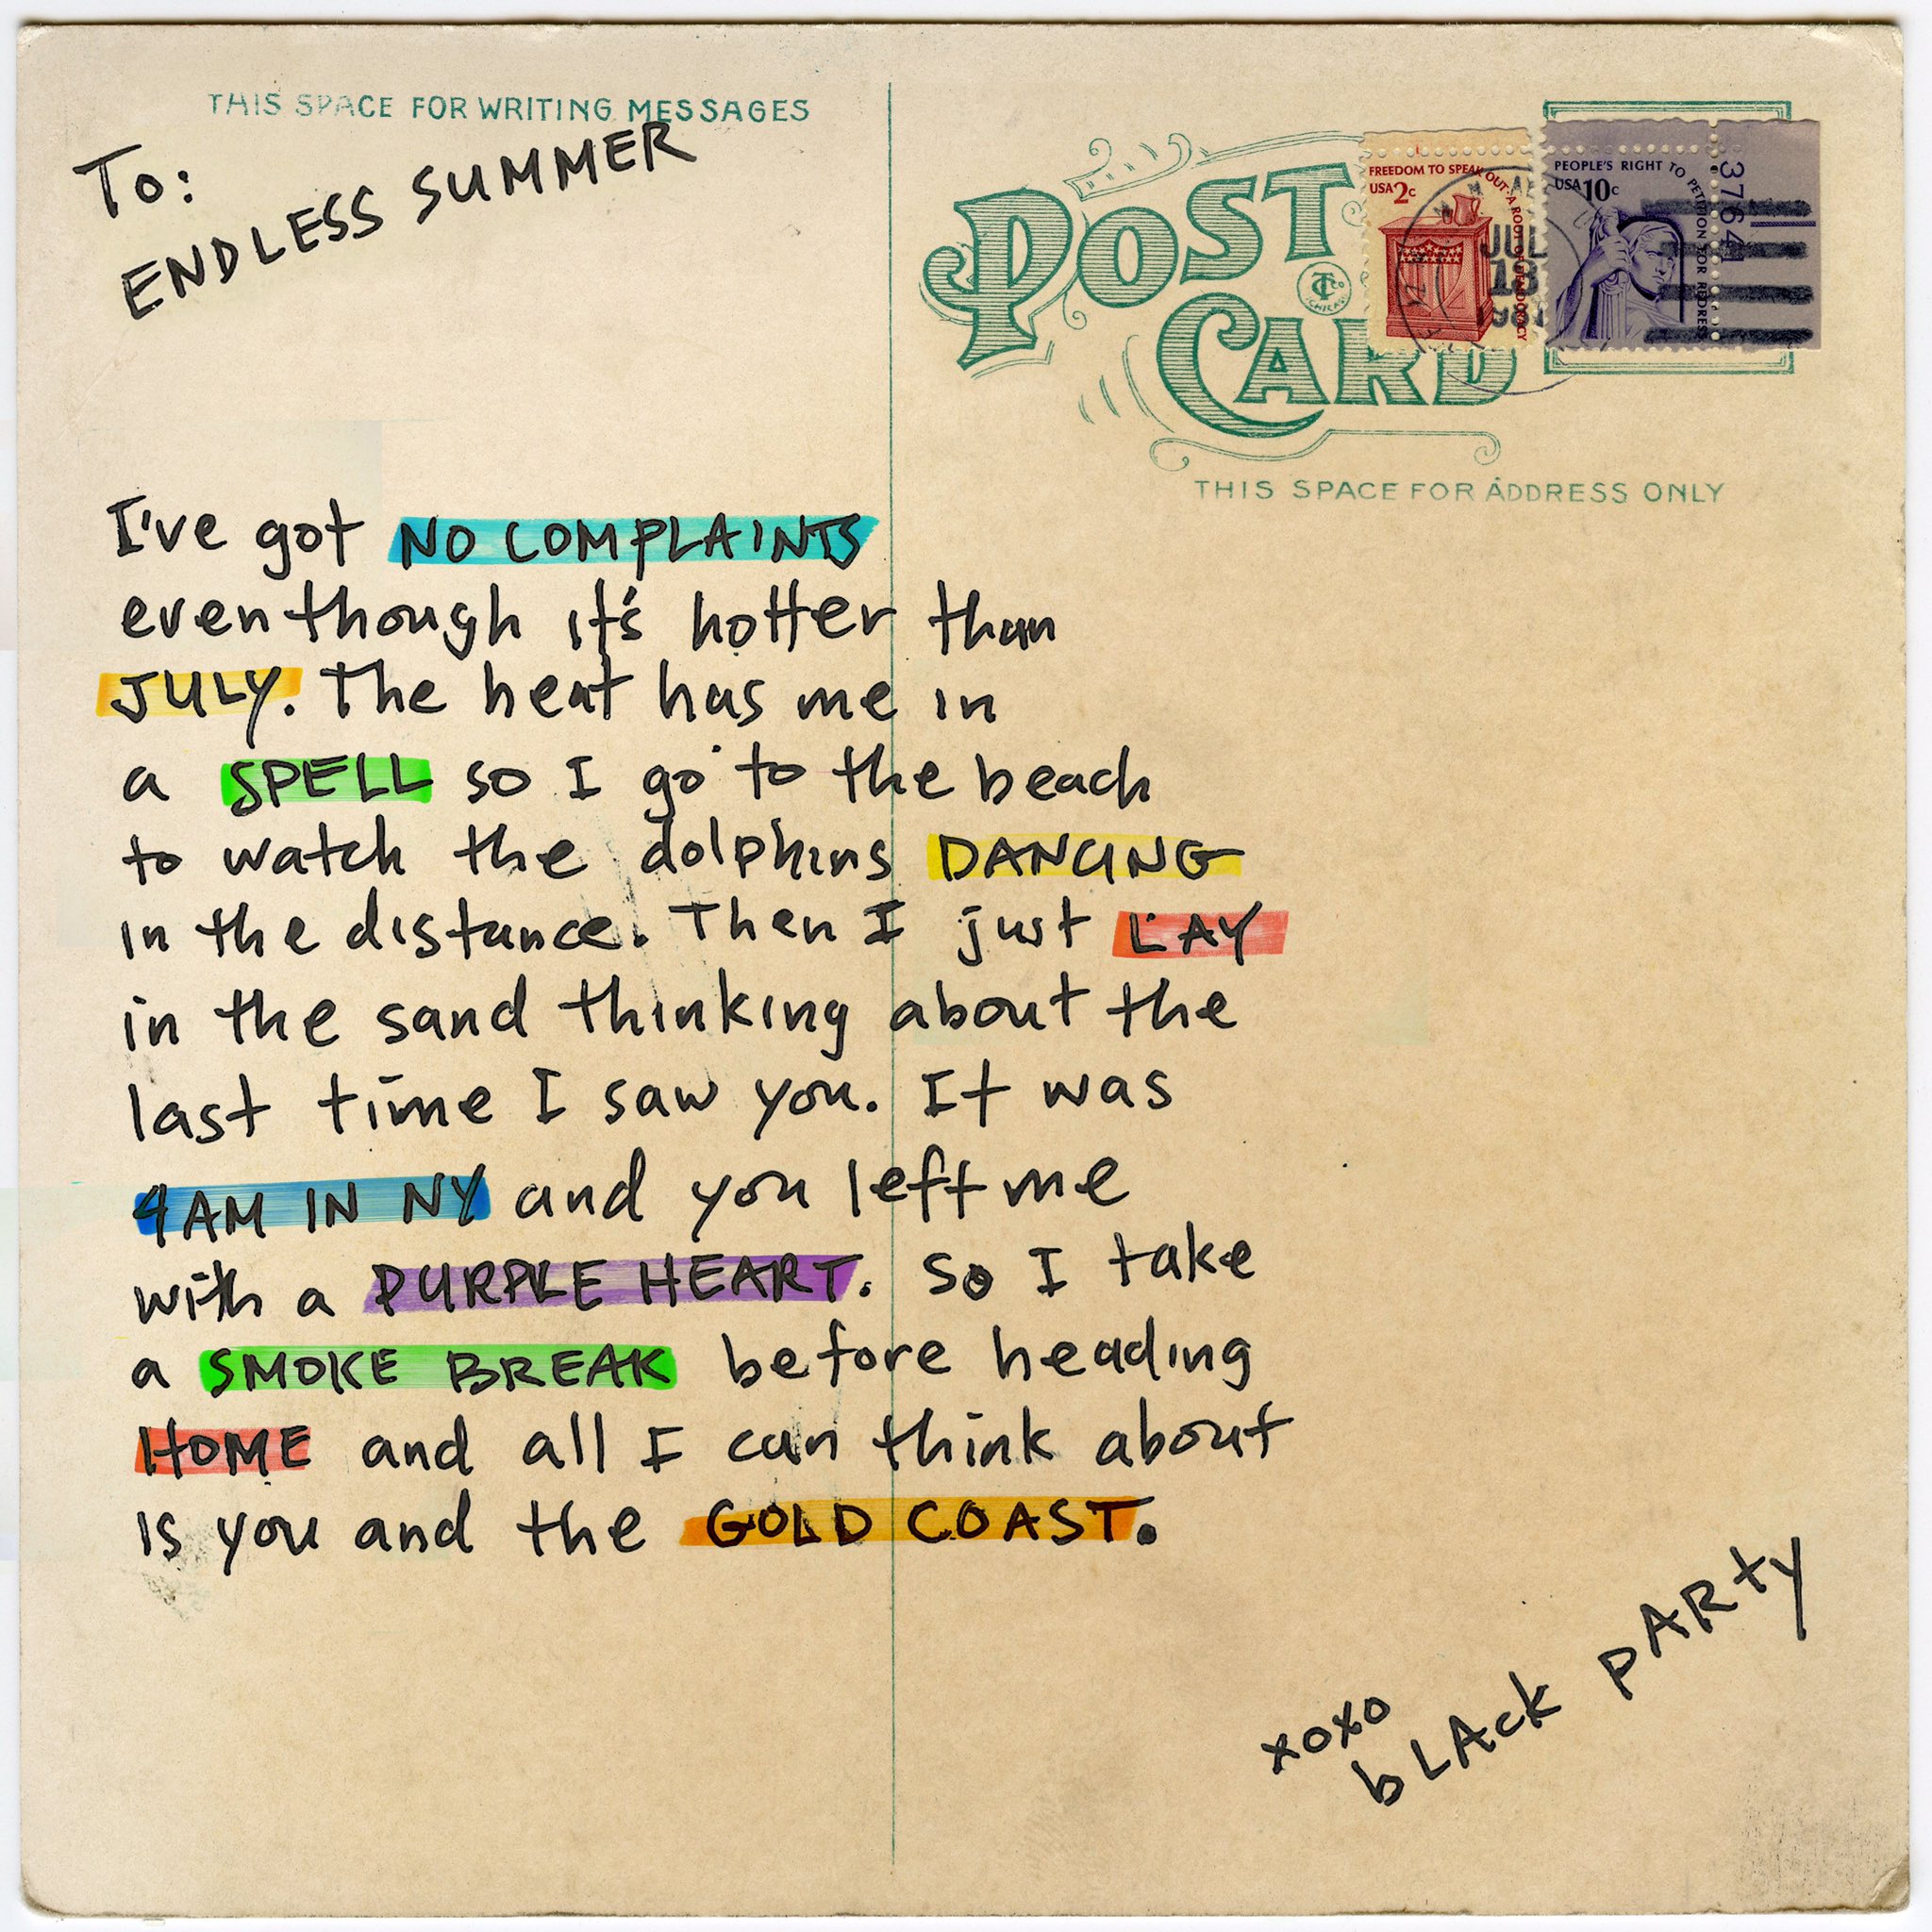 THIS SPACE FOR WRITING MESSAGES
To:
ENDLESS SUMMER
POST
CARD
FREEDOM TO SPEAK OUT-A ROOT OF DEMOCRACY
USA 2c
PEOPLE'S RIGHT TO PETITION FOR REDRESS
USA 10c
37641
JUL
18
THIS SPACE FOR ADDRESS ONLY
I've got NO COMPLAINTS
even though it's hotter than
JULY. The heat has me in
a SPELL so I go to the beach
to watch the dolphins DANCING
in the distance. Then I just LAY
in the sand thinking about the
last time I saw you. It was
4AM IN NY and you left me
with a PURPLE HEART. So I take
a SMOKE BREAK before heading
HOME and all I can think about
is you and the GOLD COAST.
xoxo
bLAck PARty